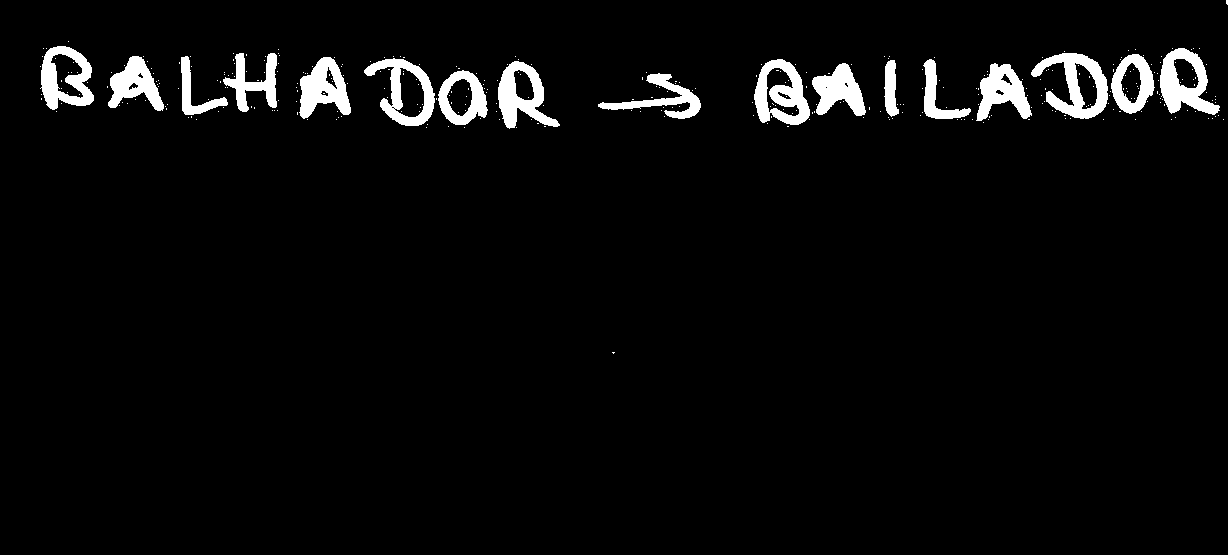 BALHADOR → BAILADOR